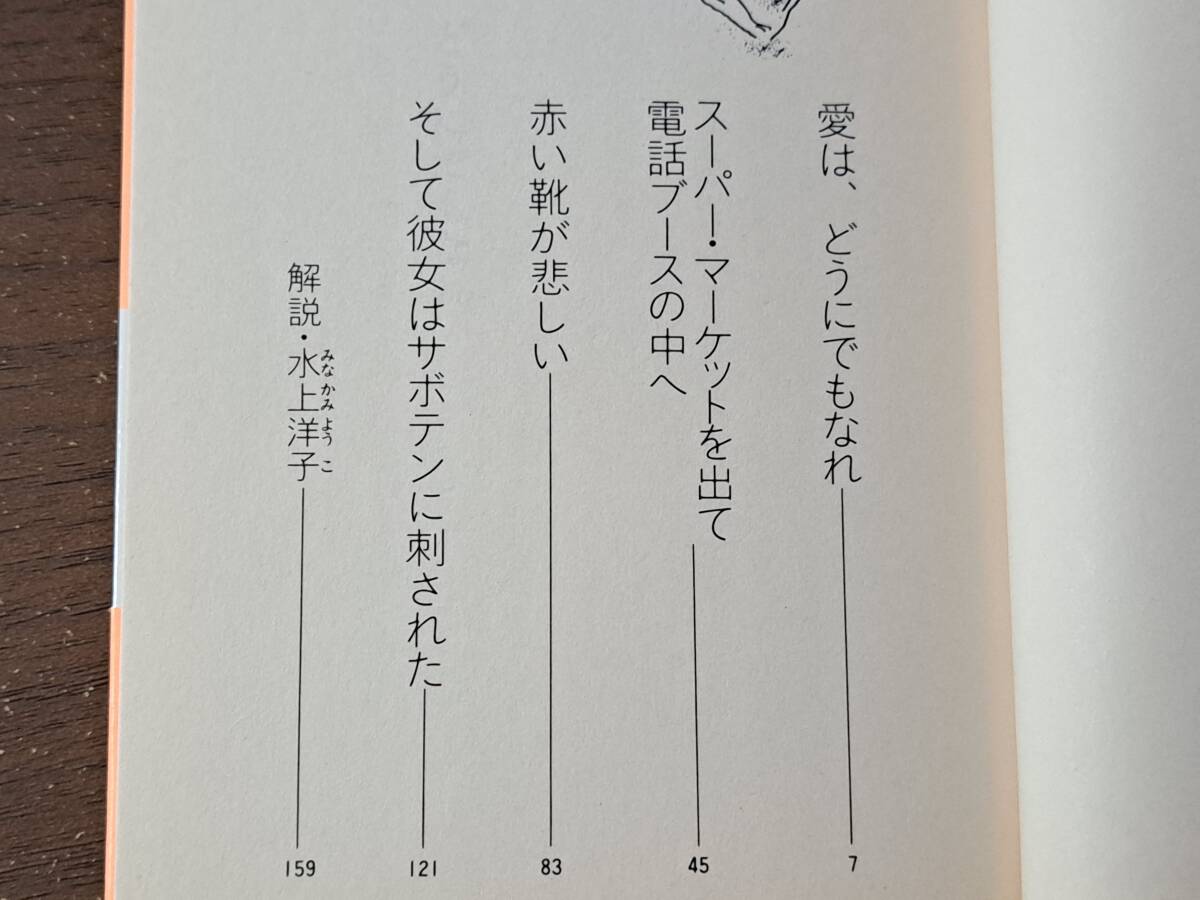 愛は、どうにでもなれ 7
スーパー・マーケットを出て
電話ブースの中へ 45
赤い靴が悲しい 83
そして彼女はサボテンに刺された 121
解説・水上洋子 159
みなかみようこ